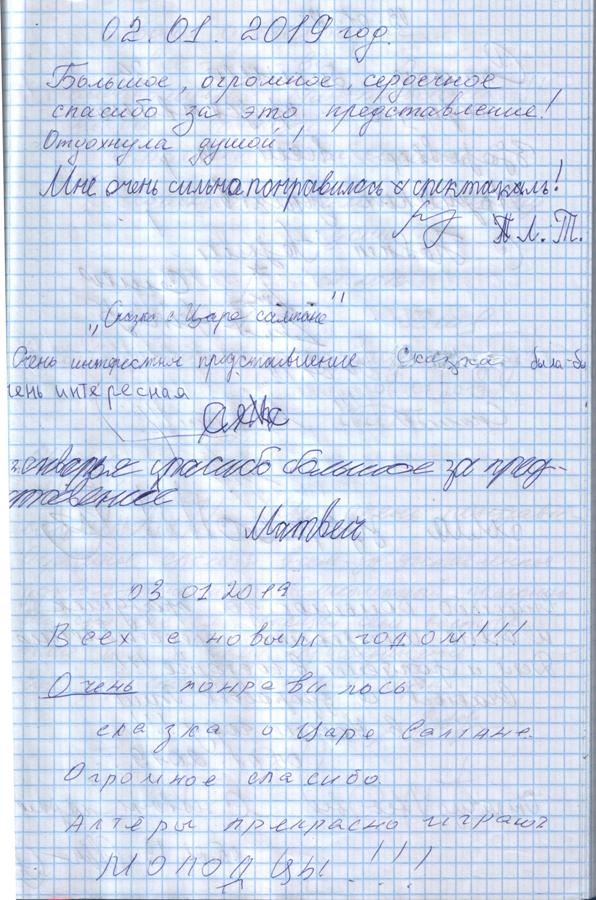 02.01.2019 год.
Большое, огромное, сердечное
спасибо за это представление!
Отдохнула душой!
Мне очень сильна понравилось спектакаль!
П Л. Т.
„Сказка о Царе салтане"
Очень интерестня представление Сказка была-бы
чень интересная
спасибо большое за пред-
ставение
Матвей
03 01 2019
Всех с новым годом!!!
Очень понравилось
сказка о Царе Салтане.
Огромное спасибо.
Актёры прекрасно играют
МОЛОДЦЫ!!!